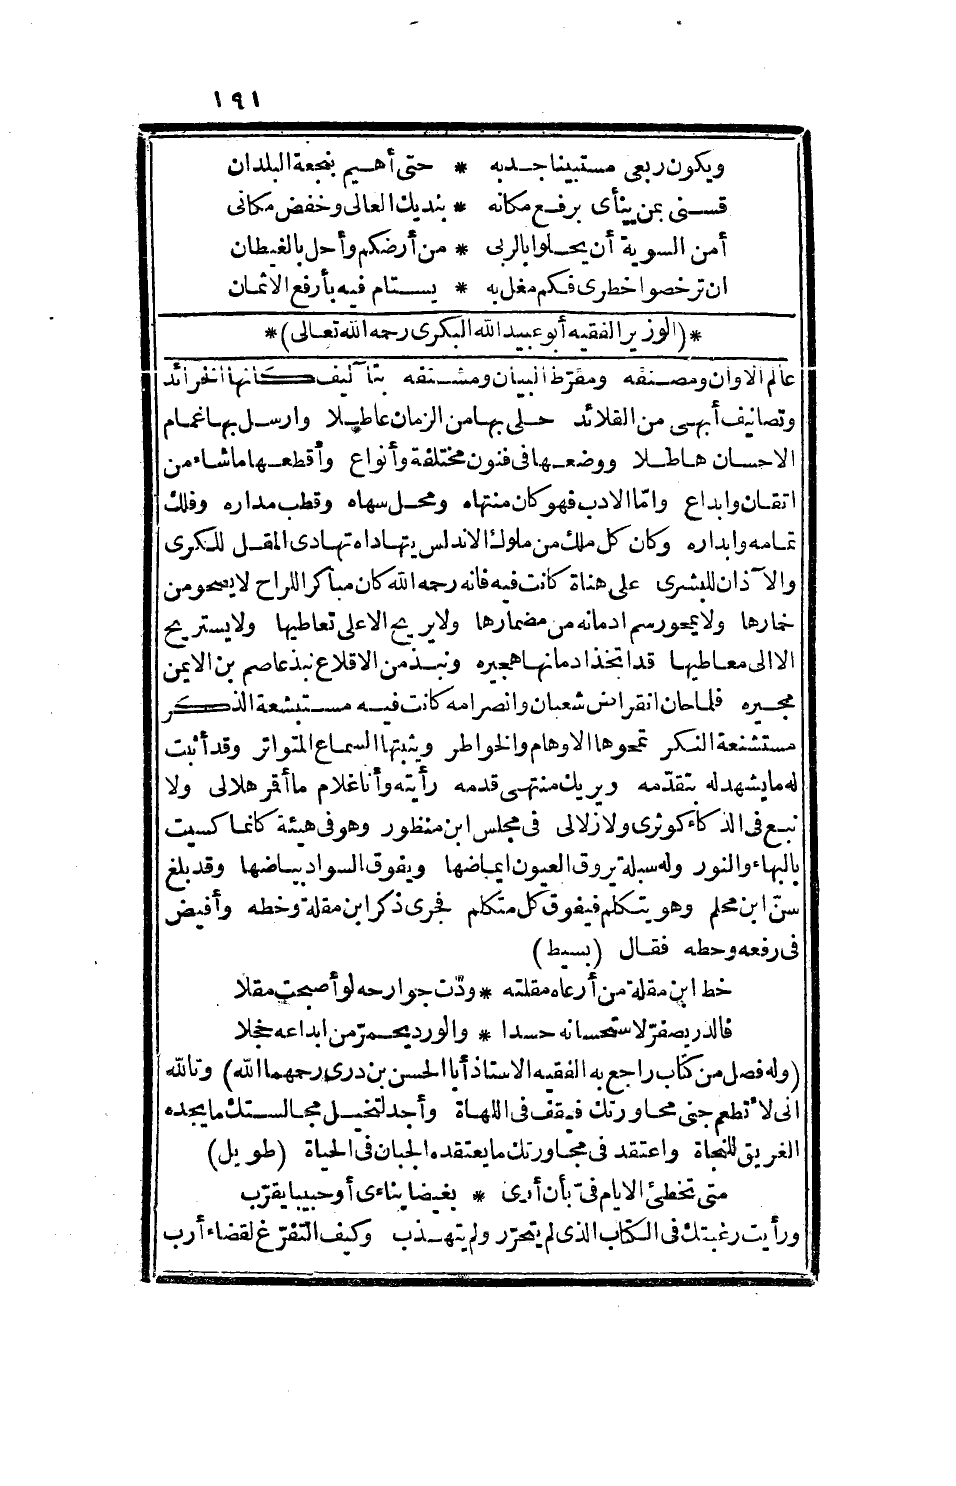 ١٩١
ويكون ربعى مستبينا جدبه * حتى أهيم بنجعة البلدان
قسنى بمن ينأى برفع مكانه * بنديك العالى وخفض مكانى
أمن السوية أن يحلوا بالربى * من أرضكم وأحل بالغيطان
ان ترخصوا خطرى فكم مغل به * يستام فيه بأرفع الاثمان
*(الوزير الفقيه أبو عبيد الله البكرى رحمه الله تعالى)*
عالم الاوان ومصنفه ومقرّط البيان ومشنفه بتآليف كانها الخرائد
وتصانيف أبهى من القلائد حلى بها من الزمان عاطلا وارسل بها غمام
الاحسان هاطلا ووضعها فى فنون مختلفة وأنواع وأقطعها ما شاء من
اتقان وابداع وامّا الادب فهو كان منتهاه ومحل سهاه وقطب مداره وفلك
تمامه وابداره وكان كل ملك من ملوك الاندلس يتهاداه تهادى المقل للكرى
والآذان للبشرى على هناة كانت فيه فانه رحمه الله كان مباكرا للراح لا يصحو من
خمارها ولا يمحو رسم ادمانه من مضمارها ولا يريح الا على تعاطيها ولا يستريح
الا الى معاطيها قد اتخذ ادمانها هجيره ونبذ من الاقلاع نبذ عاصم بن الايمن
مجيره فلما حان انقراض شعبان وانصرامه كانت فيه مستبشعة الذكر
مستشنعة النكر تمحوها الاوهام والخواطر ويثبتها السماع المتواتر وقد أثبت
له ما يشهد له بتقدّمه ويريك منتهى قدمه رأيته وأنا غلام ما أقر هلالى ولا
نبع فى الذكاء كوثرى ولا زلالى فى مجلس ابن منظور وهو فى هيئة كانما كسيت
بالبهاء والنور وله سبلة يروق العيون ايماضها ويفوق السواد بياضها وقد بلغ
سنّ ابن محلم وهو يتكلم فيفوق كل متكلم فجرى ذكر ابن مقلة وخطه وأفيض
فى رفعه وحطه فقال (بسيط)
خط ابن مقلة من أرعاه مقلته * ودّت جوارحه لو أصبحت مقلا
فالدر يصفرّ لاستحسانه حسدا * والورد يحمرّ من ابداعه خجلا
(وله فصل من كتاب راجع به الفقيه الاستاذ أبا الحسن بن درى رحمهما الله) وتالله
انى لأتطعم جنى محاورتك فيقف فى اللهاة وأجد لتخيل مجالستك ما يجده
الغريق للنجاة واعتقد فى مجاورتك ما يعتقده الجبان فى الحياة (طويل)
متى تخطئ الايام فىّ بأن أرى * بغيضا يناءى أو حبيبا يقرّب
ورأيت رغبتك فى الكتاب الذى لم يتحرّر ولم يتهذب وكيف التفرّغ لقضاء أرب